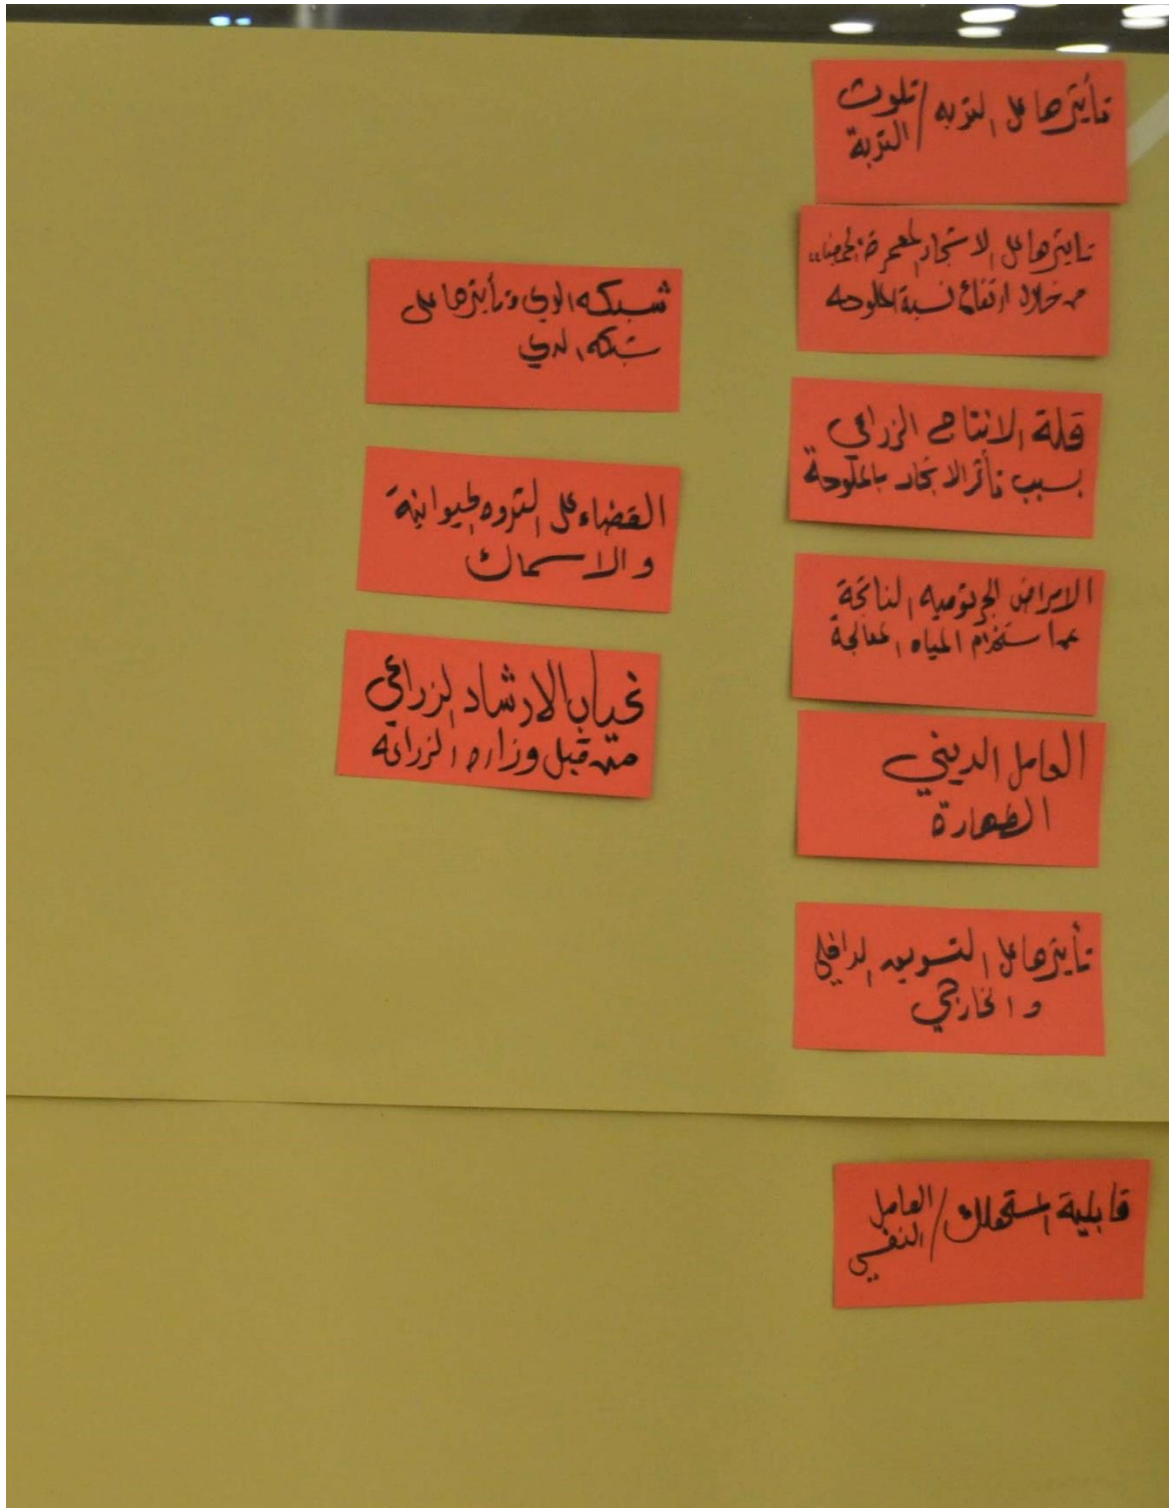 تأثيرها على التربه / تلوث
التربة
تاثيرها على الاشجار المعمرة
من خلال ارتفاع نسبة الملوحه
قلة الانتاج الزراعي
بسبب تأثر الاشجار بالملوحة
الامراض الجرثوميه الناتجة
عن استخدام المياه المعالجة
العامل الديني
الطهارة
تأثيرها على التسويق الداخلي
و الخارجي
قابلية المستهلك / العامل
النفسي
شبكه الري وتأثيرها على
شبكه الري
القضاء على الثروه الحيوانية
و الاسماك
غياب الارشاد الزراعي
من قبل وزاره الزراعه